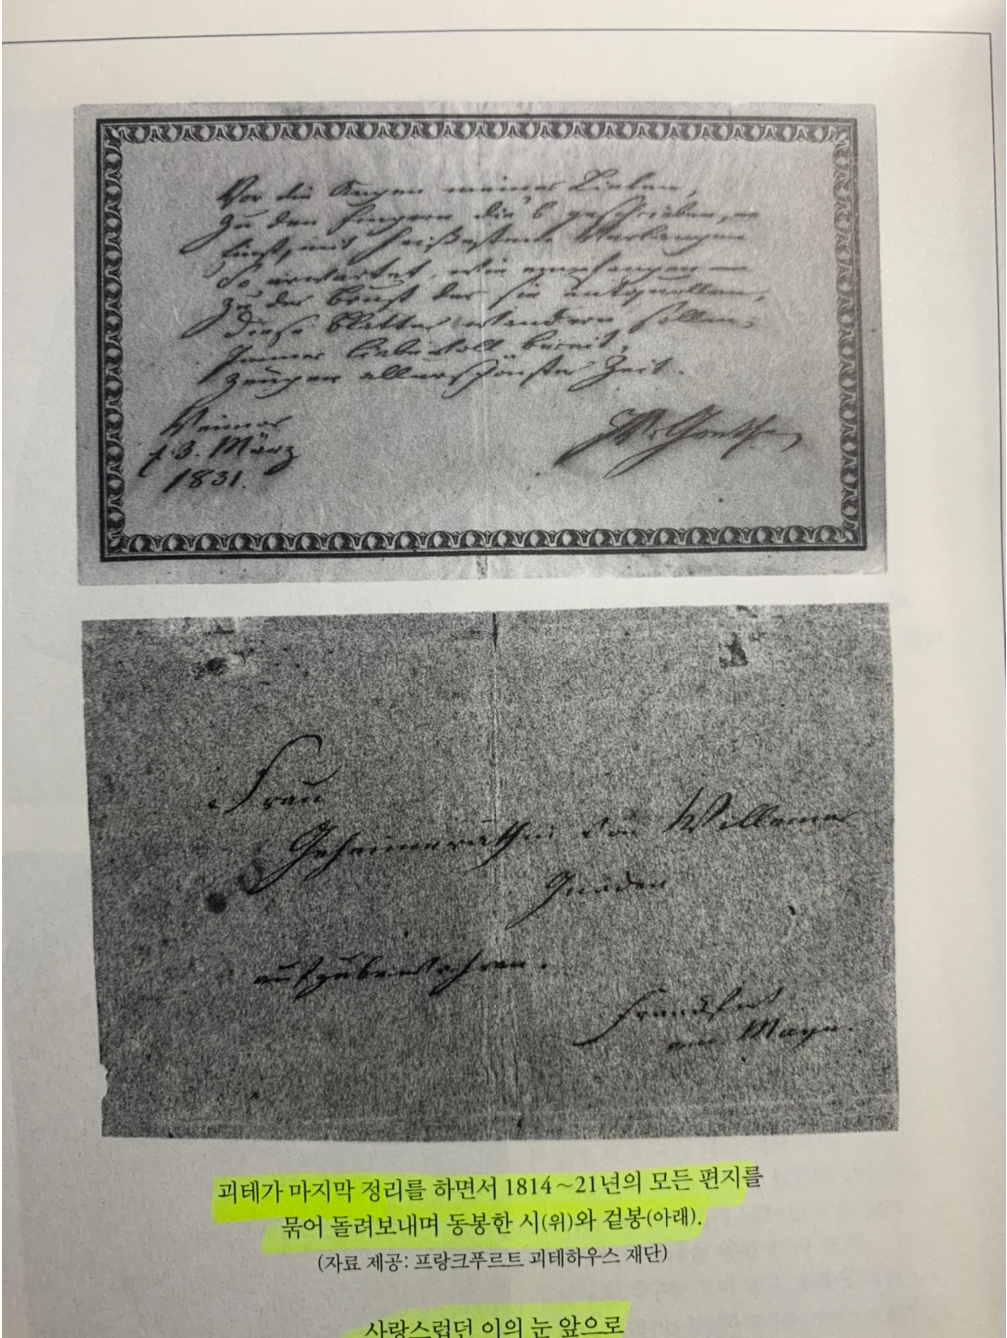 Vor die Augen meiner Lieben,
Zu den Fingern die's geschrieben, –
Einst, mit heißestem Verlangen
So erwartet, wie empfangen –
Zu der Brust der sie entquollen,
Diese Blätter wandern sollen;
Immer liebevoll bereit,
Zeugen allerschönster Zeit.
Weimar
d. 3. März
1831.
JWvGoethe
Frau
Geheimeräthin von Willemer
Gnaden
aufzubewahren.
Franckfurt
am Mayn.
괴테가 마지막 정리를 하면서 1814~21년의 모든 편지를
묶어 돌려보내며 동봉한 시(위)와 겉봉(아래).
(자료 제공: 프랑크푸르트 괴테하우스 재단)
사랑스럽던 이의 눈 앞으로